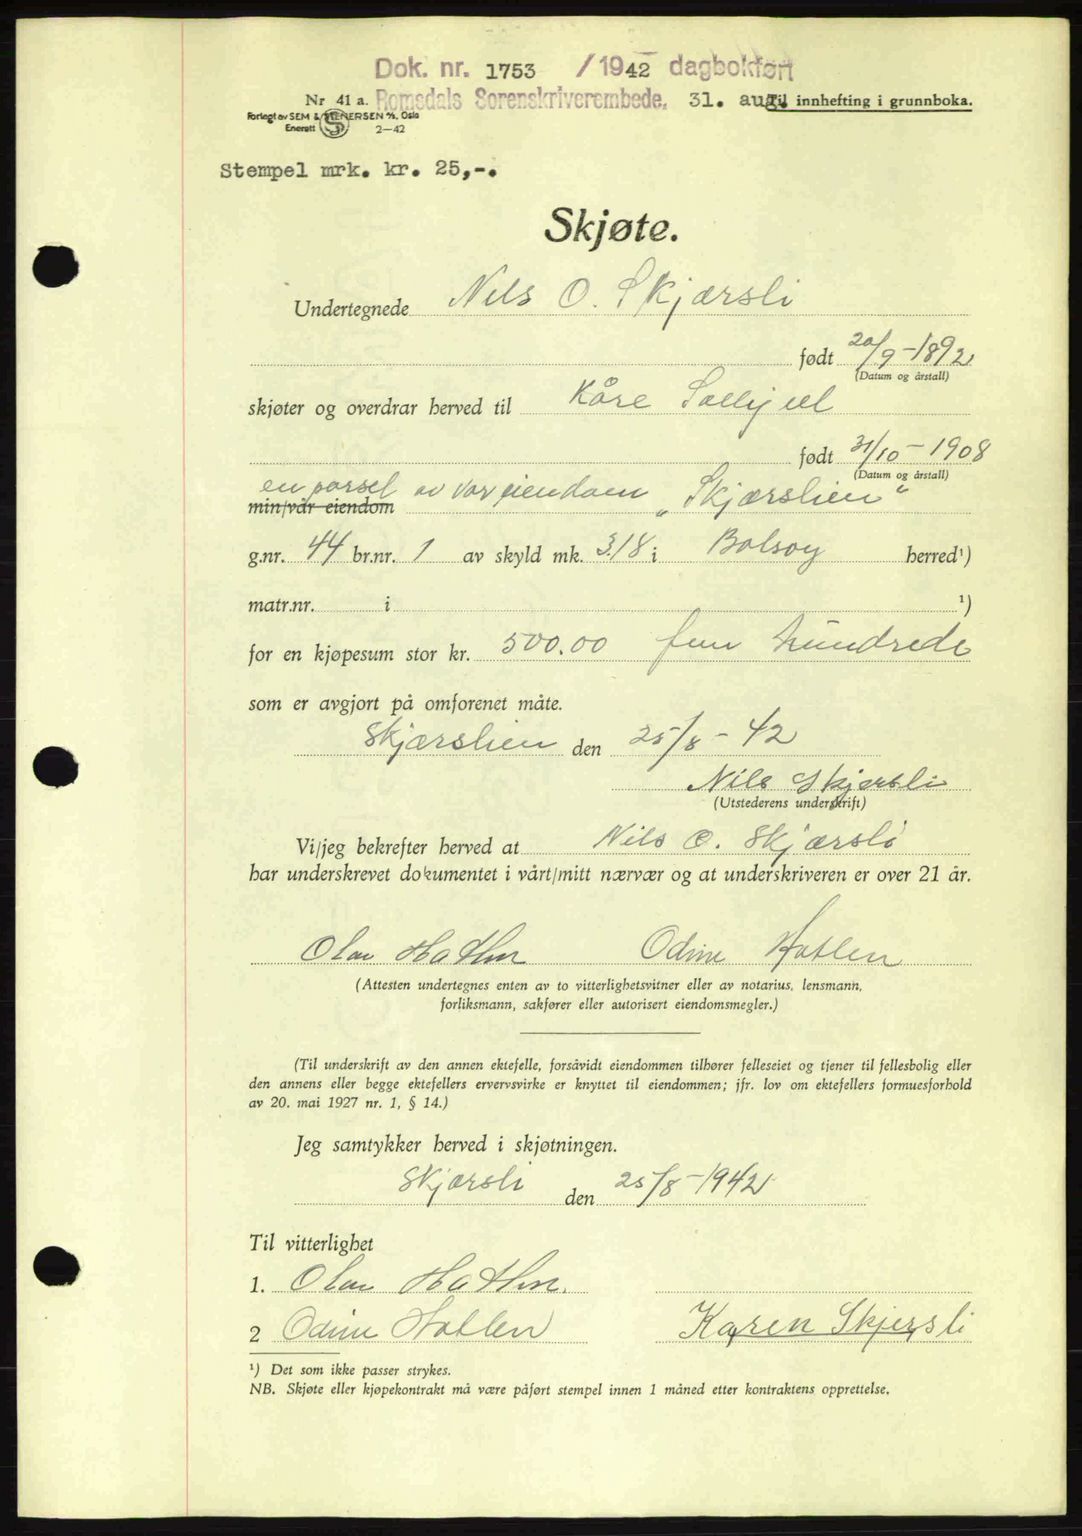 Dok. nr. 1753 /1942 dagbokført
Nr 41 a. Romsdals Sorenskriverembede, 31. aug. Til innhefting i grunnboka.
Forlagt av SEM & STENERSEN A/S, Oslo
Enerett S 2—42
Stempel mrk. kr. 25,-.
Skjøte.
Undertegnede Nils O. Skjærsli
født 20/9-1892
(Datum og årstall)
skjøter og overdrar herved til Kåre Sollijell
født 31/10-1908
(Datum og årstall)
en parsel av vor eiendom „Skjærslien“
min/vår eiendom
g.nr. 44 br.nr. 1 av skyld mk. 3.18 i Bolsøy herred¹)
matr.nr. i ¹)
for en kjøpesum stor kr. 500.00 fem hundrede
som er avgjort på omforenet måte.
Skjærslien den 25/8-42
Nils Skjersli
(Utstederens underskrift)
Vi/jeg bekrefter herved at Nils O. Skjærsli
har underskrevet dokumentet i vårt/mitt nærvær og at underskriveren er over 21 år.
Olav Hatlen Odine Hatlen
(Attesten undertegnes enten av to vitterlighetsvitner eller av notarius, lensmann,
forliksmann, sakfører eller autorisert eiendomsmegler.)
(Til underskrift av den annen ektefelle, forsåvidt eiendommen tilhører felleseiet og tjener til fellesbolig eller
den annens eller begge ektefellers ervervsvirke er knyttet til eiendommen; jfr. lov om ektefellers formuesforhold
av 20. mai 1927 nr. 1, § 14.)
Jeg samtykker herved i skjøtningen.
Skjærsli den 25/8-1942
Til vitterlighet
1. Olav Hatlen.
2 Odine Hatlen Karen Skjersli
¹) Det som ikke passer strykes.
NB. Skjøte eller kjøpekontrakt må være påført stempel innen 1 måned etter kontraktens opprettelse.